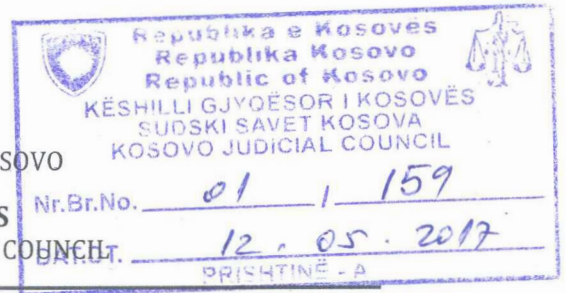 Republika e Kosovës
Republika Kosovo
Republic of Kosovo
KËSHILLI GJYQËSOR I KOSOVËS
SUDSKI SAVET KOSOVA
KOSOVO JUDICIAL COUNCIL
SOVO
Nr.Br.No. 01 / 159
S
COUNCIL
DAT.DT. 12. 05. 2017
PRISHTINË - A